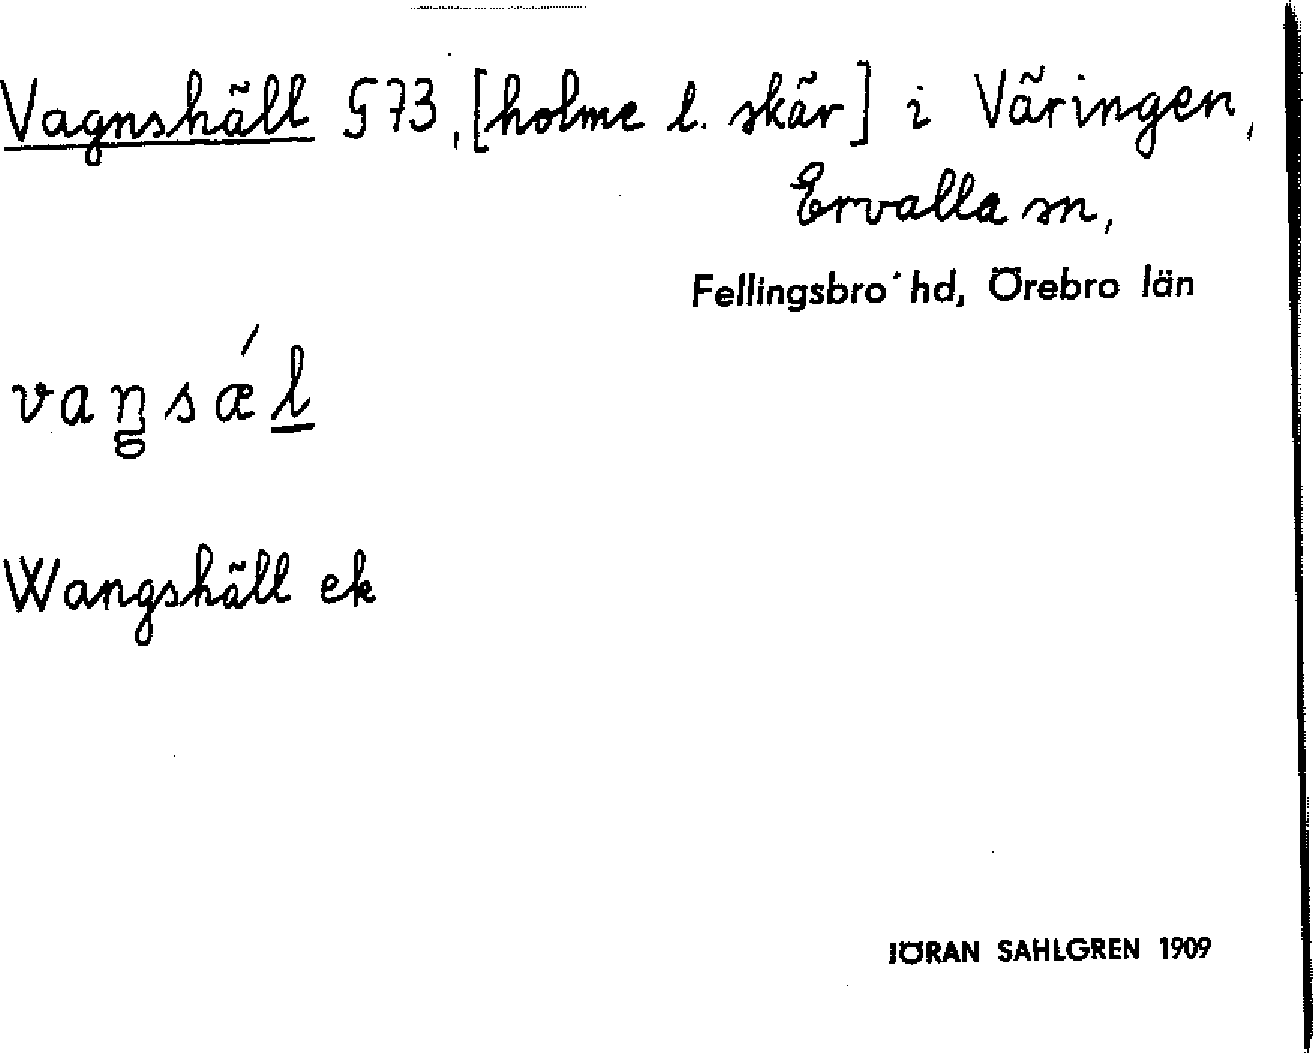 Vagnshäll S73, [holme l. skär] i Väringen,
Ervalla sn,
Fellingsbro hd, Örebro län
vaŋsǽl
Wangshäll ek
JÖRAN SAHLGREN 1909